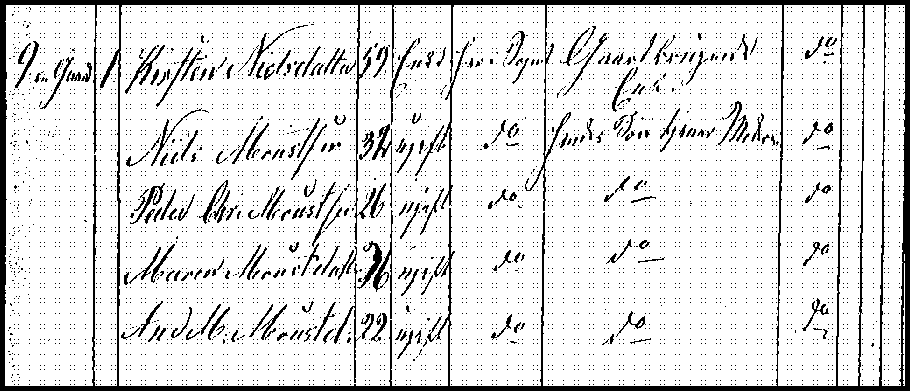 9 en Gaard 1 Kirsten Nielsdatter 59 Enke her i Sognet Gaardbrugende do
Enke
Niels Moustsen 32 ugift do hendes Søn tjener Moderen do
Peder Chr. Moustsen 26 ugift do do do
Maren Moustdatter 36 ugift do do do
Ane M. Moustd. 22 ugift do do do